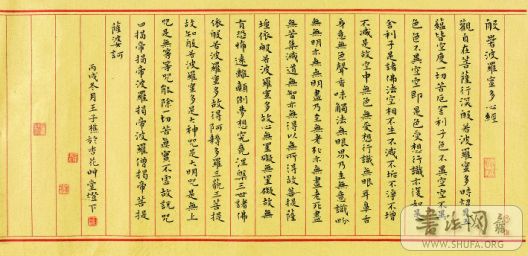 般若波羅蜜多心經
觀自在菩薩行深般若波羅蜜多時照見五
蘊皆空度一切苦厄舍利子色不異空空不異
色色即是空空即是色受想行識亦復如是
舍利子是諸法空相不生不滅不垢不淨不增
不減是故空中無色無受想行識無眼耳鼻舌
身意無色聲香味觸法無眼界乃至無意識界
無無明亦無無明盡乃至無老死亦無老死盡
無苦集滅道無智亦無得以無所得故菩提薩
埵依般若波羅蜜多故心無罣礙無罣礙故無
有恐怖遠離顛倒夢想究竟涅槃三世諸佛
依般若波羅蜜多故得阿耨多羅三藐三菩提
故知般若波羅蜜多是大神咒是大明咒是無上
咒是無等等咒能除一切苦真實不虛故說咒
曰揭帝揭帝波羅揭帝波羅僧揭帝菩提
薩婆訶
丙戌冬月王子樵於香花艸堂燈下
書法网
WWW.SHUFA.ORG